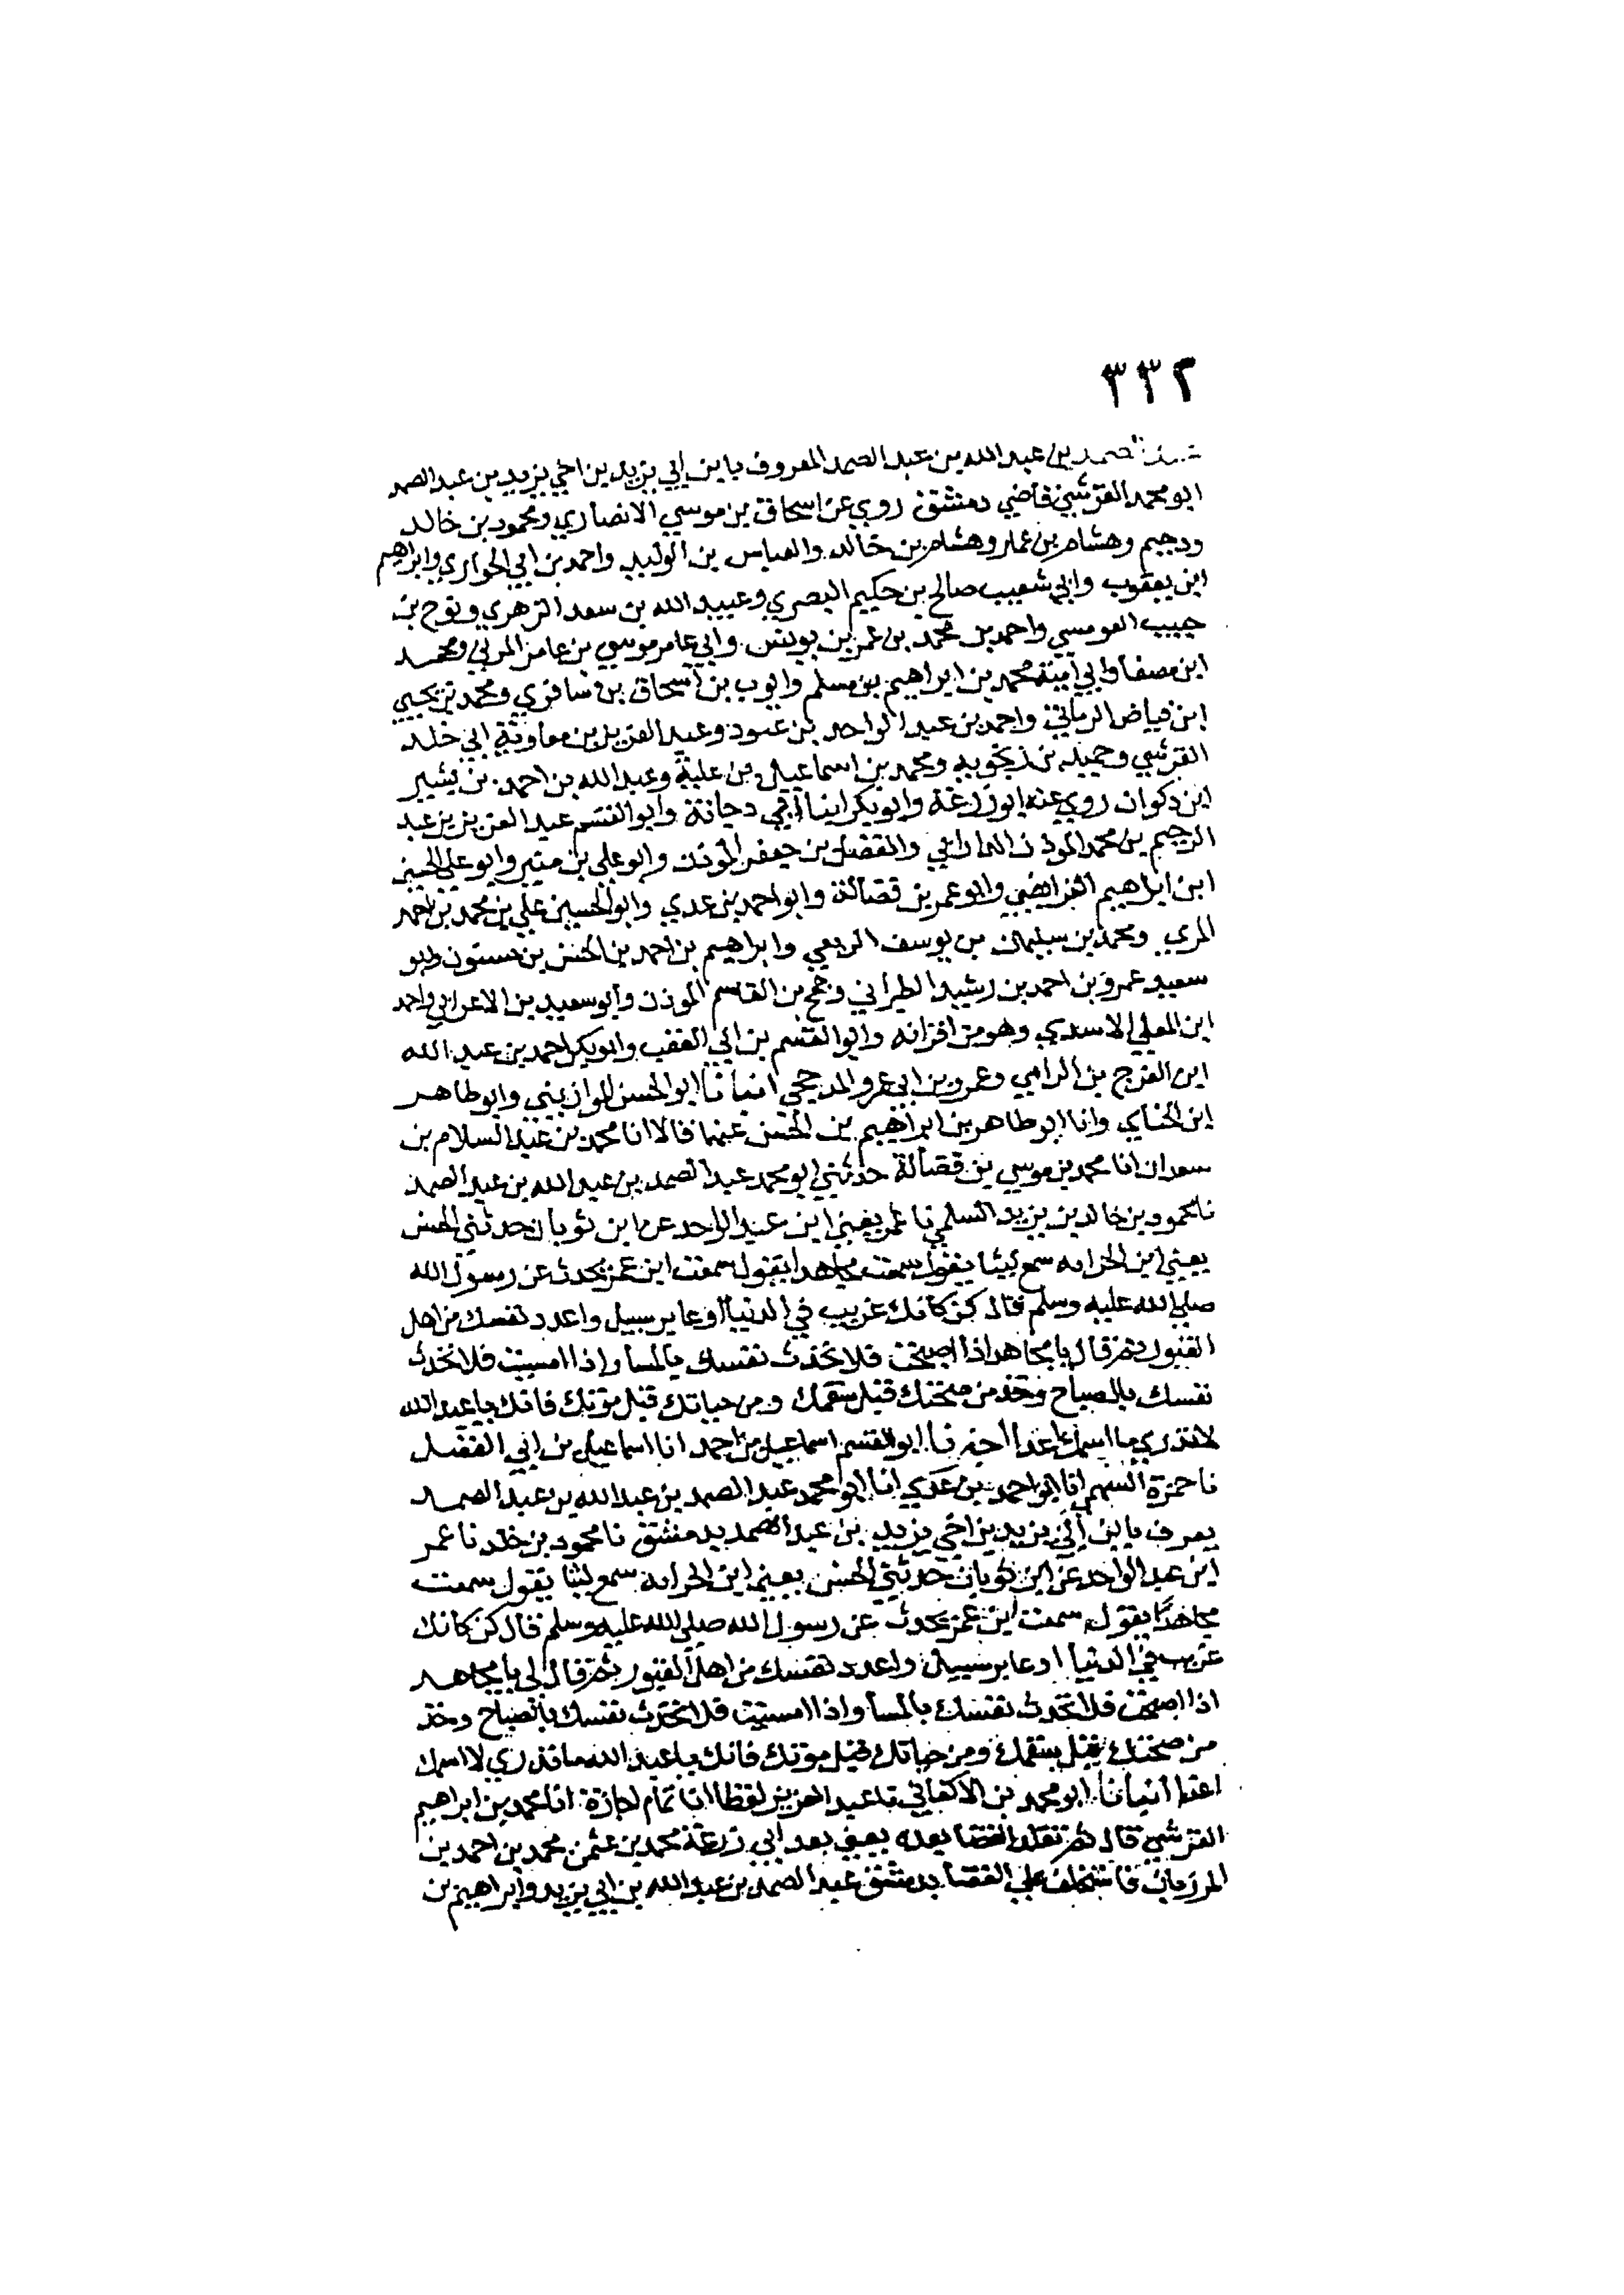 ٣٣٢
عبد الصمد بن عبد الله بن عبد الصمد المعروف بابن ابي يزيد بن اخي يزيد بن عبد الصمد
ابو محمد القرشي قاضي دمشق روي عن اسحاق بن موسي الانصاري ومحمود بن خالد
ودحيم وهشام بن عمار وهشام بن خالد والعباس بن الوليد واحمد بن ابي الحواري وابراهيم
ابن يعقوب وابي شعيب صالح بن حكيم البصري وعبيد الله بن سعد الزهري ونوح بن
حبيب القومسي واحمد بن محمد بن عمر بن يونس وابي عامر موسي بن عامر المري ومحمد
ابن مصفا وابي امية محمد بن ابراهيم بن مسلم وايوب بن اسحاق بن سافري ومحمد بن يحيي
ابن فياض الزماني واحمد بن عبد الواحد بن عبود وعبد العزيز بن معاوية ابي خلد
القرشي وحميد بن زنجويه ومحمد بن اسماعيل بن علية وعبد الله بن احمد بن بشير
ابن ذكوان روي عنه ابو زرعة وابو بكر ابنا ابي دجانة وابو القسم عبد العزيز بن عبد
الرحيم بن محمد الموذن الداراني والفضل بن جعفر الموذن وابو علي بن منير وابو علي الحسن
ابن ابراهيم الفرايضي وابو عمر بن فضالة وابو احمد بن عدي وابو الحسين علي بن محمد بن احمد
المري ومحمد بن سليمان بن يوسف الربعي وابراهيم بن احمد بن الحسن بن حسنون وابو
سعيد عمرو بن احمد بن رشيد الطبراني وجمح بن القاسم الموذن وابو سعيد بن الاعرابي واحمد
ابن المعلي الاسدي وهو من اقرانه وابو القسم بن ابي العقب وابو بكر احمد بن عبد الله
ابن الفرج بن البرامي وعمرو بن ابي عمرو المدحجي انبانا ابو الحسن الموازيني وابو طاهر
ابن الحنائي وانا ابو طاهر بن ابراهيم بن الحسن عنهما قالا انا محمد بن عبد السلام بن
سعدان انا محمد بن موسي بن فضالة حدثني ابو محمد عبد الصمد بن عبد الله بن عبد الصمد
نا محمود بن خالد بن يزيد السلمي نا عمر يعني ابن عبد الواحد عن ابن ثوبان حدثني الحسن
يعني ابن الحرانه سمع ليثا يقول سمعت مجاهدا يقول سمعت ابن عمر يحدث عن رسول الله
صلي الله عليه وسلم قال كن كانك غريب في الدنيا او عابر سبيل واعدد نفسك من اهل
القبور ثم قال يا مجاهد اذا اصبحت فلا تحدث نفسك بالمسا واذا امسيت فلا تحدث
نفسك بالصباح وخذ من صحتك قبل سقمك ومن حياتك قبل موتك فانك يا عبد الله
لا تدري ما اسمك غدا اخبرنا ابو القسم اسماعيل بن احمد انا اسماعيل بن ابي الفضل
نا حمزة السهمي انا ابو احمد بن عدي انا ابو محمد عبد الصمد بن عبد الله بن عبد الصمد
يعرف بابن ابي يزيد بن اخي يزيد بن عبد الصمد بدمشق نا محمود بن خلد نا عمر
ابن عبد الواحد عن ابن ثوبان حدثني الحسن يعني ابن الحرانه سمع ليثا يقول سمعت
مجاهدا يقول سمعت ابن عمر يحدث عن رسول الله صلي الله عليه وسلم قال كن كانك
غريب في الدنيا او عابر سبيل واعدد نفسك من اهل القبور ثم قال لي يا مجاهد
اذا اصبحت فلا تحدث نفسك بالمسا واذا امسيت فلا تحدث نفسك بالصباح وخذ
من صحتك قبل سقمك ومن حياتك قبل موتك فانك يا عبد الله ما تدري لا اسمك
غدا انبانا ابو محمد بن الاكفاني نا عبد العزيز لفظا انا تمام اجازة انا محمد بن ابراهيم
القرشي قال ثم تقلد القضا بعده يعني بعد ابي زرعة محمد بن عثمن محمد بن احمد بن
المرزبان فاستخلف علي القضا بدمشق عبد الصمد بن عبد الله بن ابي يزيد وابراهيم بن